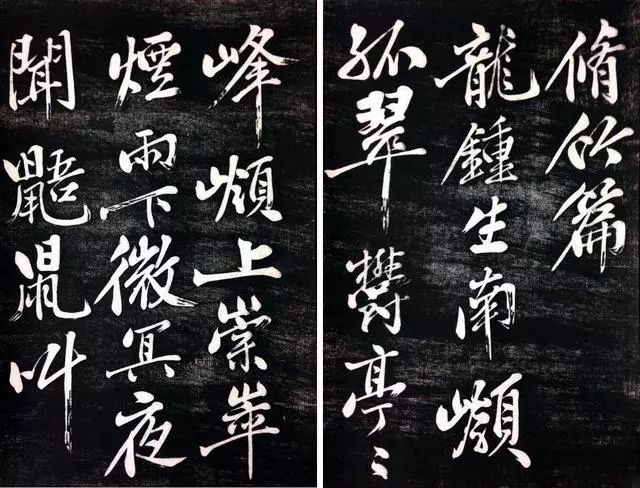 脩竹篇
龍鍾生南
孤翠鬱亭〻
峰嶺上崇崒
煙雨下微冥夜
聞鼯鼠叫